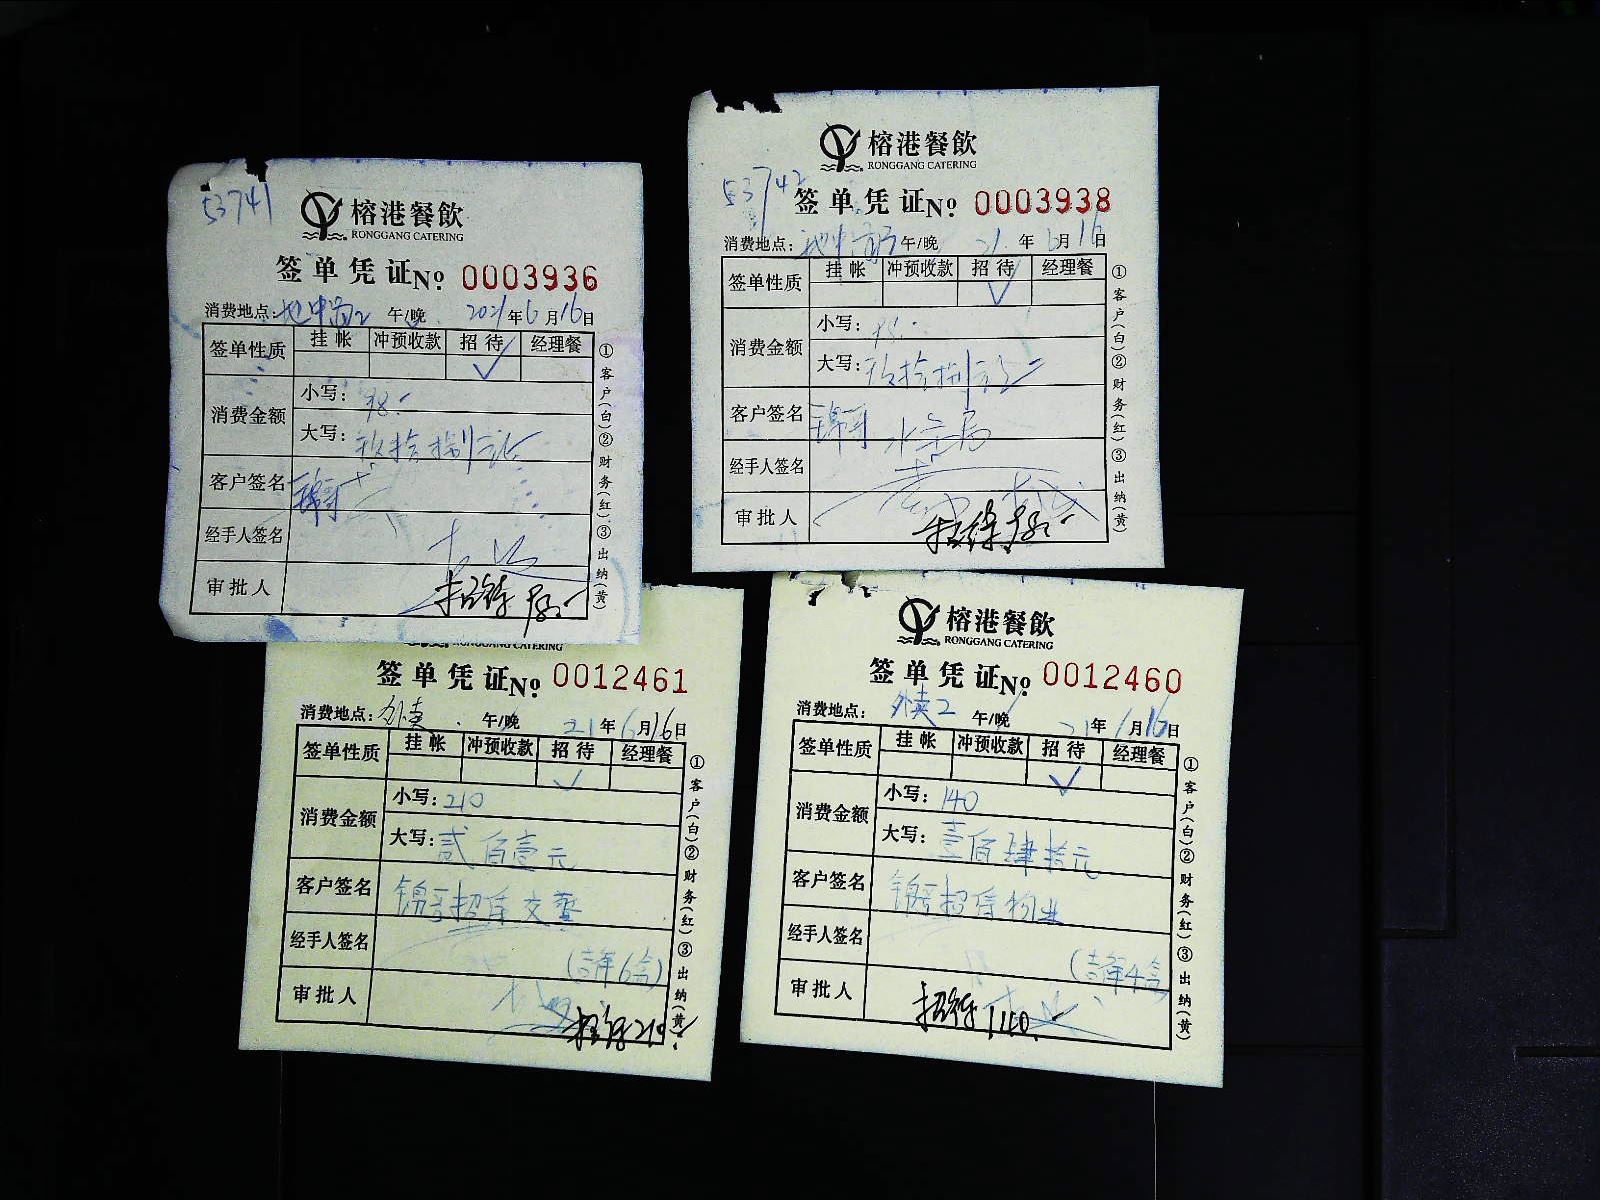 53741
榕港餐飲
RONGGANG CATERING
签单凭证 № 0003936
消费地点: 午/晚 2021年6月16日
签单性质 挂帐 冲预收款 招待 经理餐
✓
消费金额 小写: 98.-
大写: 玖拾捌元
客户签名
经手人签名
审批人 招待98.-
①客户(白)②财务(红)③出纳(黄)
53742
榕港餐飲
RONGGANG CATERING
签单凭证 № 0003938
消费地点: 午/晚 21年6月16日
签单性质 挂帐 冲预收款 招待 经理餐
✓
消费金额 小写: 98.-
大写: 玖拾捌元
客户签名
经手人签名
审批人 招待98.-
①客户(白)②财务(红)③出纳(黄)
RONGGANG CATERING
签单凭证 № 0012461
消费地点: 外卖 午/晚 21年6月16日
签单性质 挂帐 冲预收款 招待 经理餐
✓
消费金额 小写: 210
大写: 贰佰壹元
客户签名 锦哥招待交警
经手人签名 (6盒)
审批人 招待210
①客户(白)②财务(红)③出纳(黄)
榕港餐飲
RONGGANG CATERING
签单凭证 № 0012460
消费地点: 外卖2 午/晚 21年6月16日
签单性质 挂帐 冲预收款 招待 经理餐
✓
消费金额 小写: 140
大写: 壹佰肆拾元
客户签名 锦哥招待物业
经手人签名 (4盒
审批人 招待140.-
①客户(白)②财务(红)③出纳(黄)